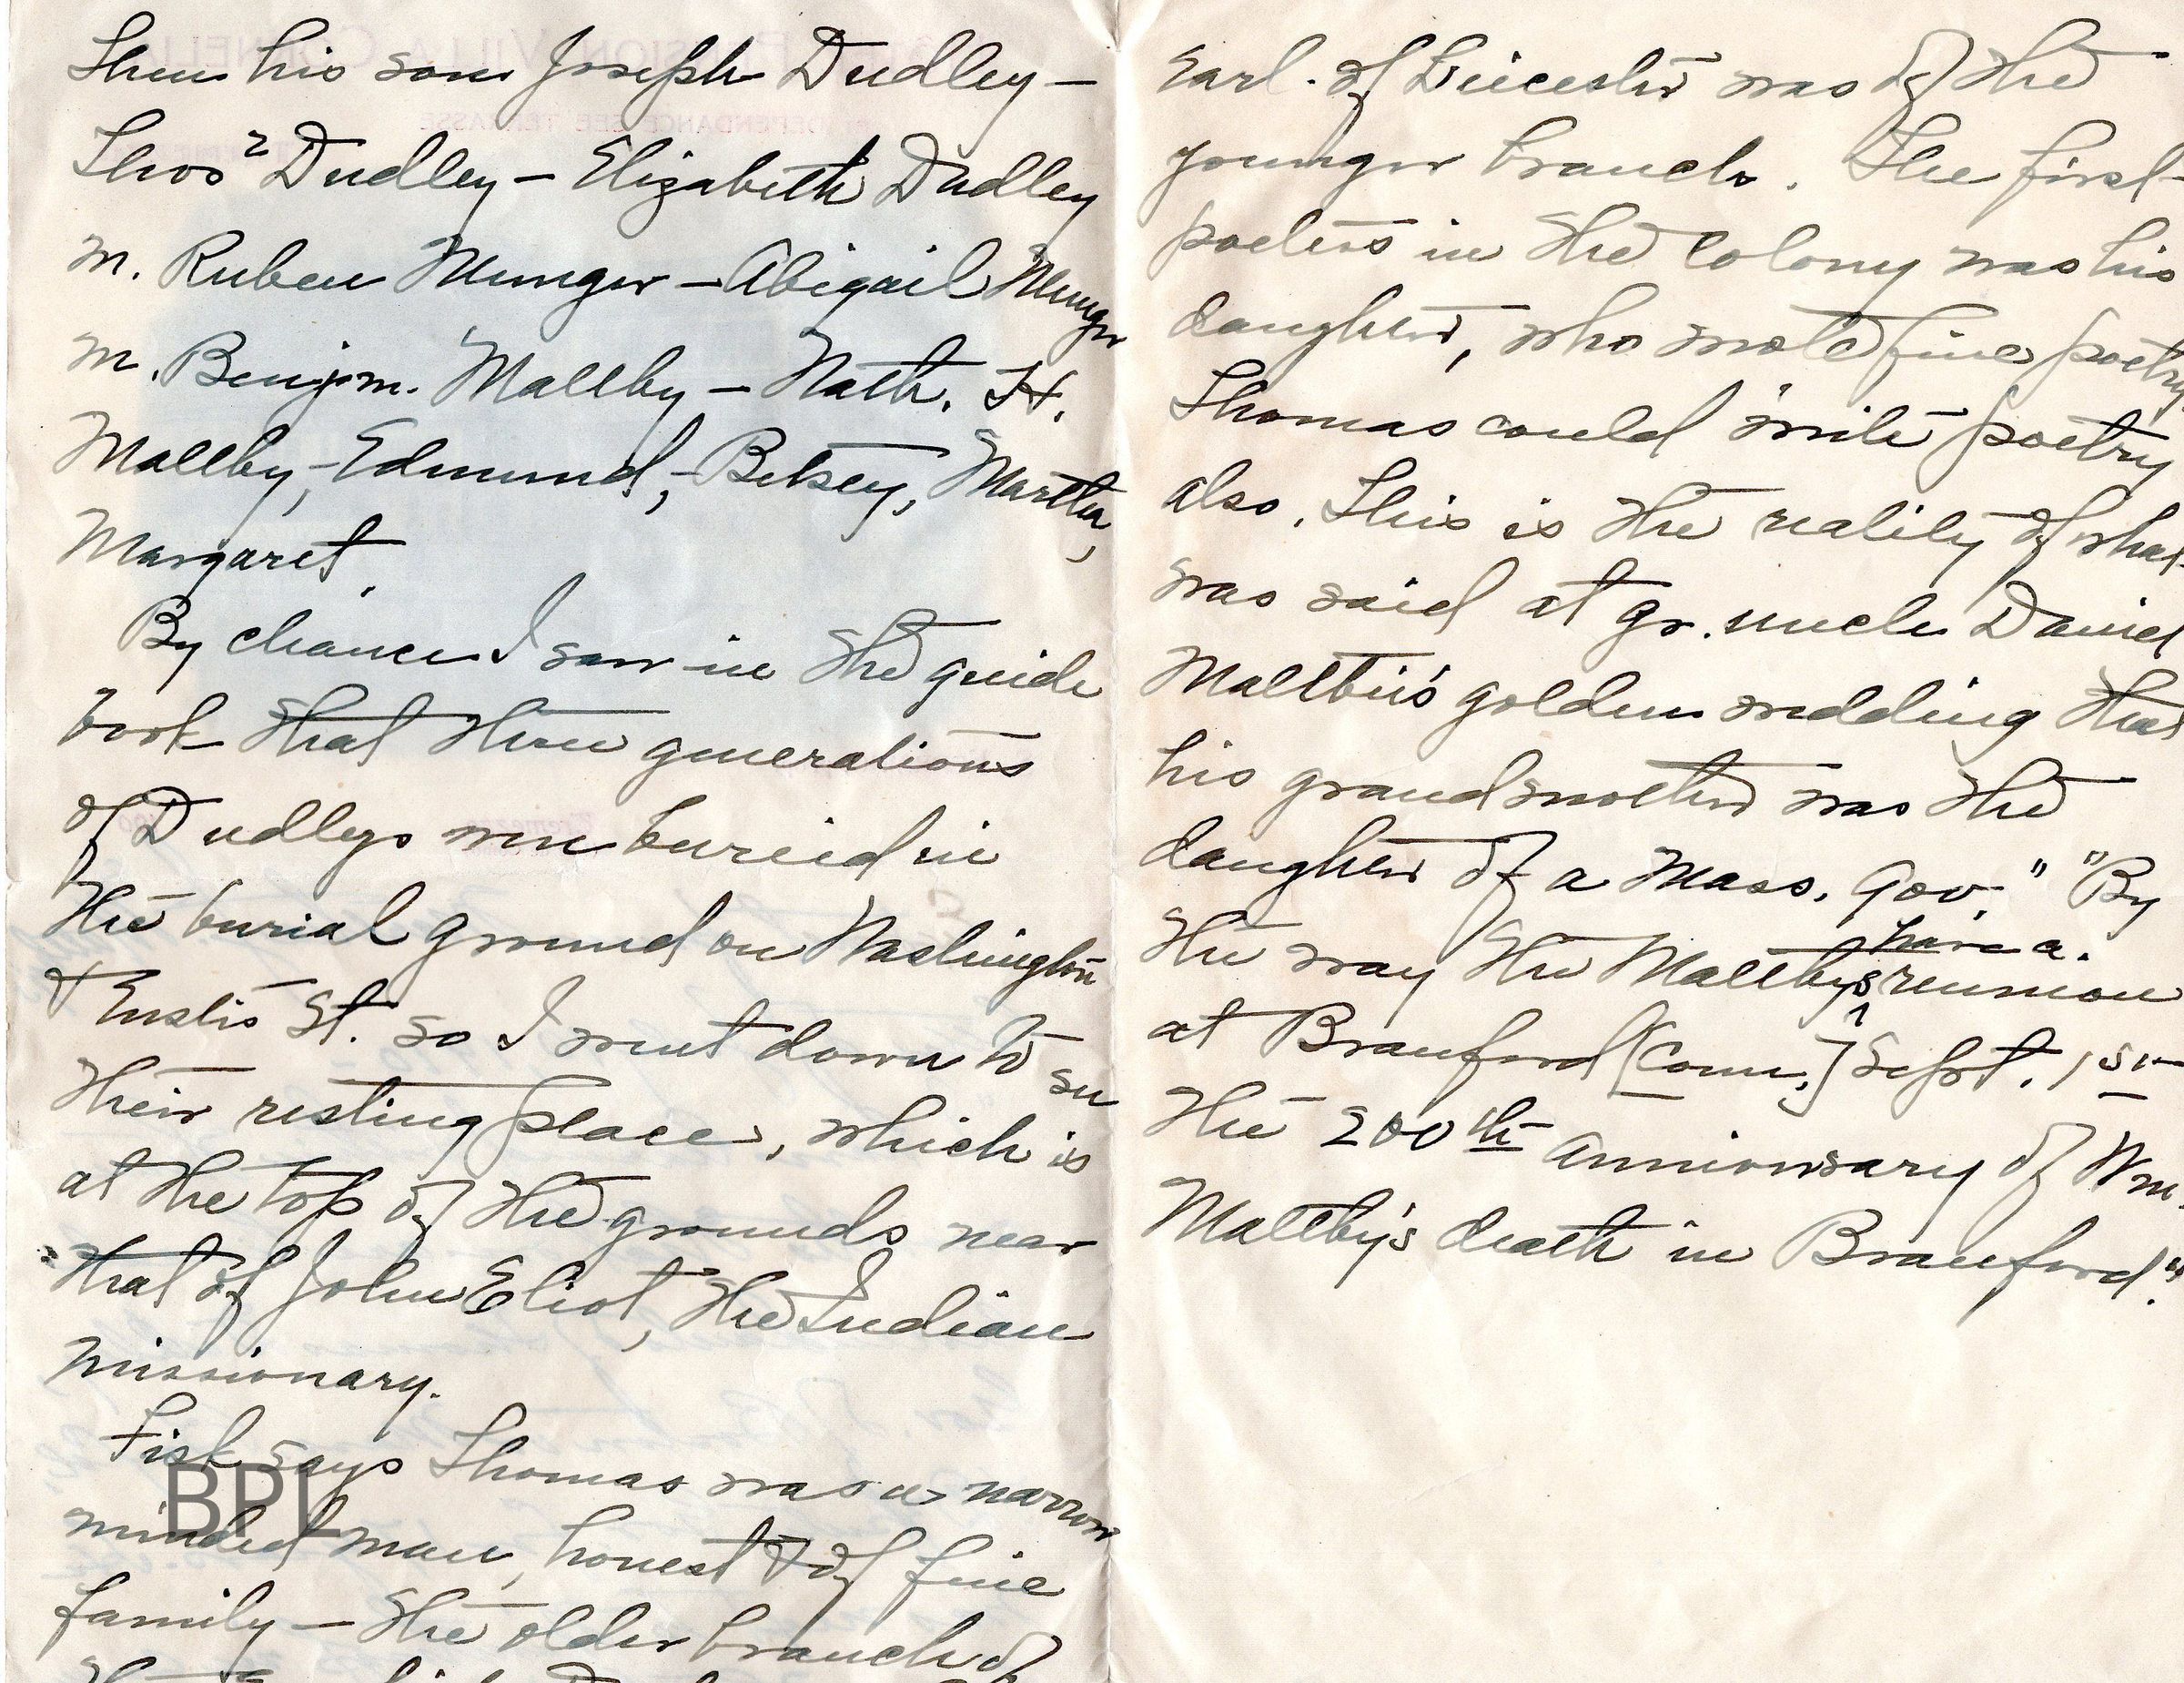 Then his son Joseph Dudley —
Thos² Dudley — Elizabeth Dudley
m. Ruben Munger — Abigail Munger
m. Benjm. Maltby — Nath. H.
Maltby, — Edmund, — Betsey, Martha,
Margaret.
By chance I saw in the guide
book that three generations
of Dudleys were buried in
the burial ground on Washington
& Eustis St. so I went down to see
their resting place, which is
at the top of the grounds near
that of John Eliot, the Indian
missionary.
Fisk says Thomas was a narrow
minded man, honest & of fine
family — the older branch of
BPL
Earl. of Leicester was of the
younger branch. The first
poetess in the Colony was his
daughter, who wrote fine poetry
Thomas could write poetry
also. This is the reality of what
was said at gr. uncle Daniel
Maltbie's golden wedding that
his grandmother was the
daughter of a Mass. Gov." "By
the way the Maltbys have a reunion
at Branford [Conn.] Sept. 1st
the 200th anniversary of Wm.
Maltby's death in Branford."